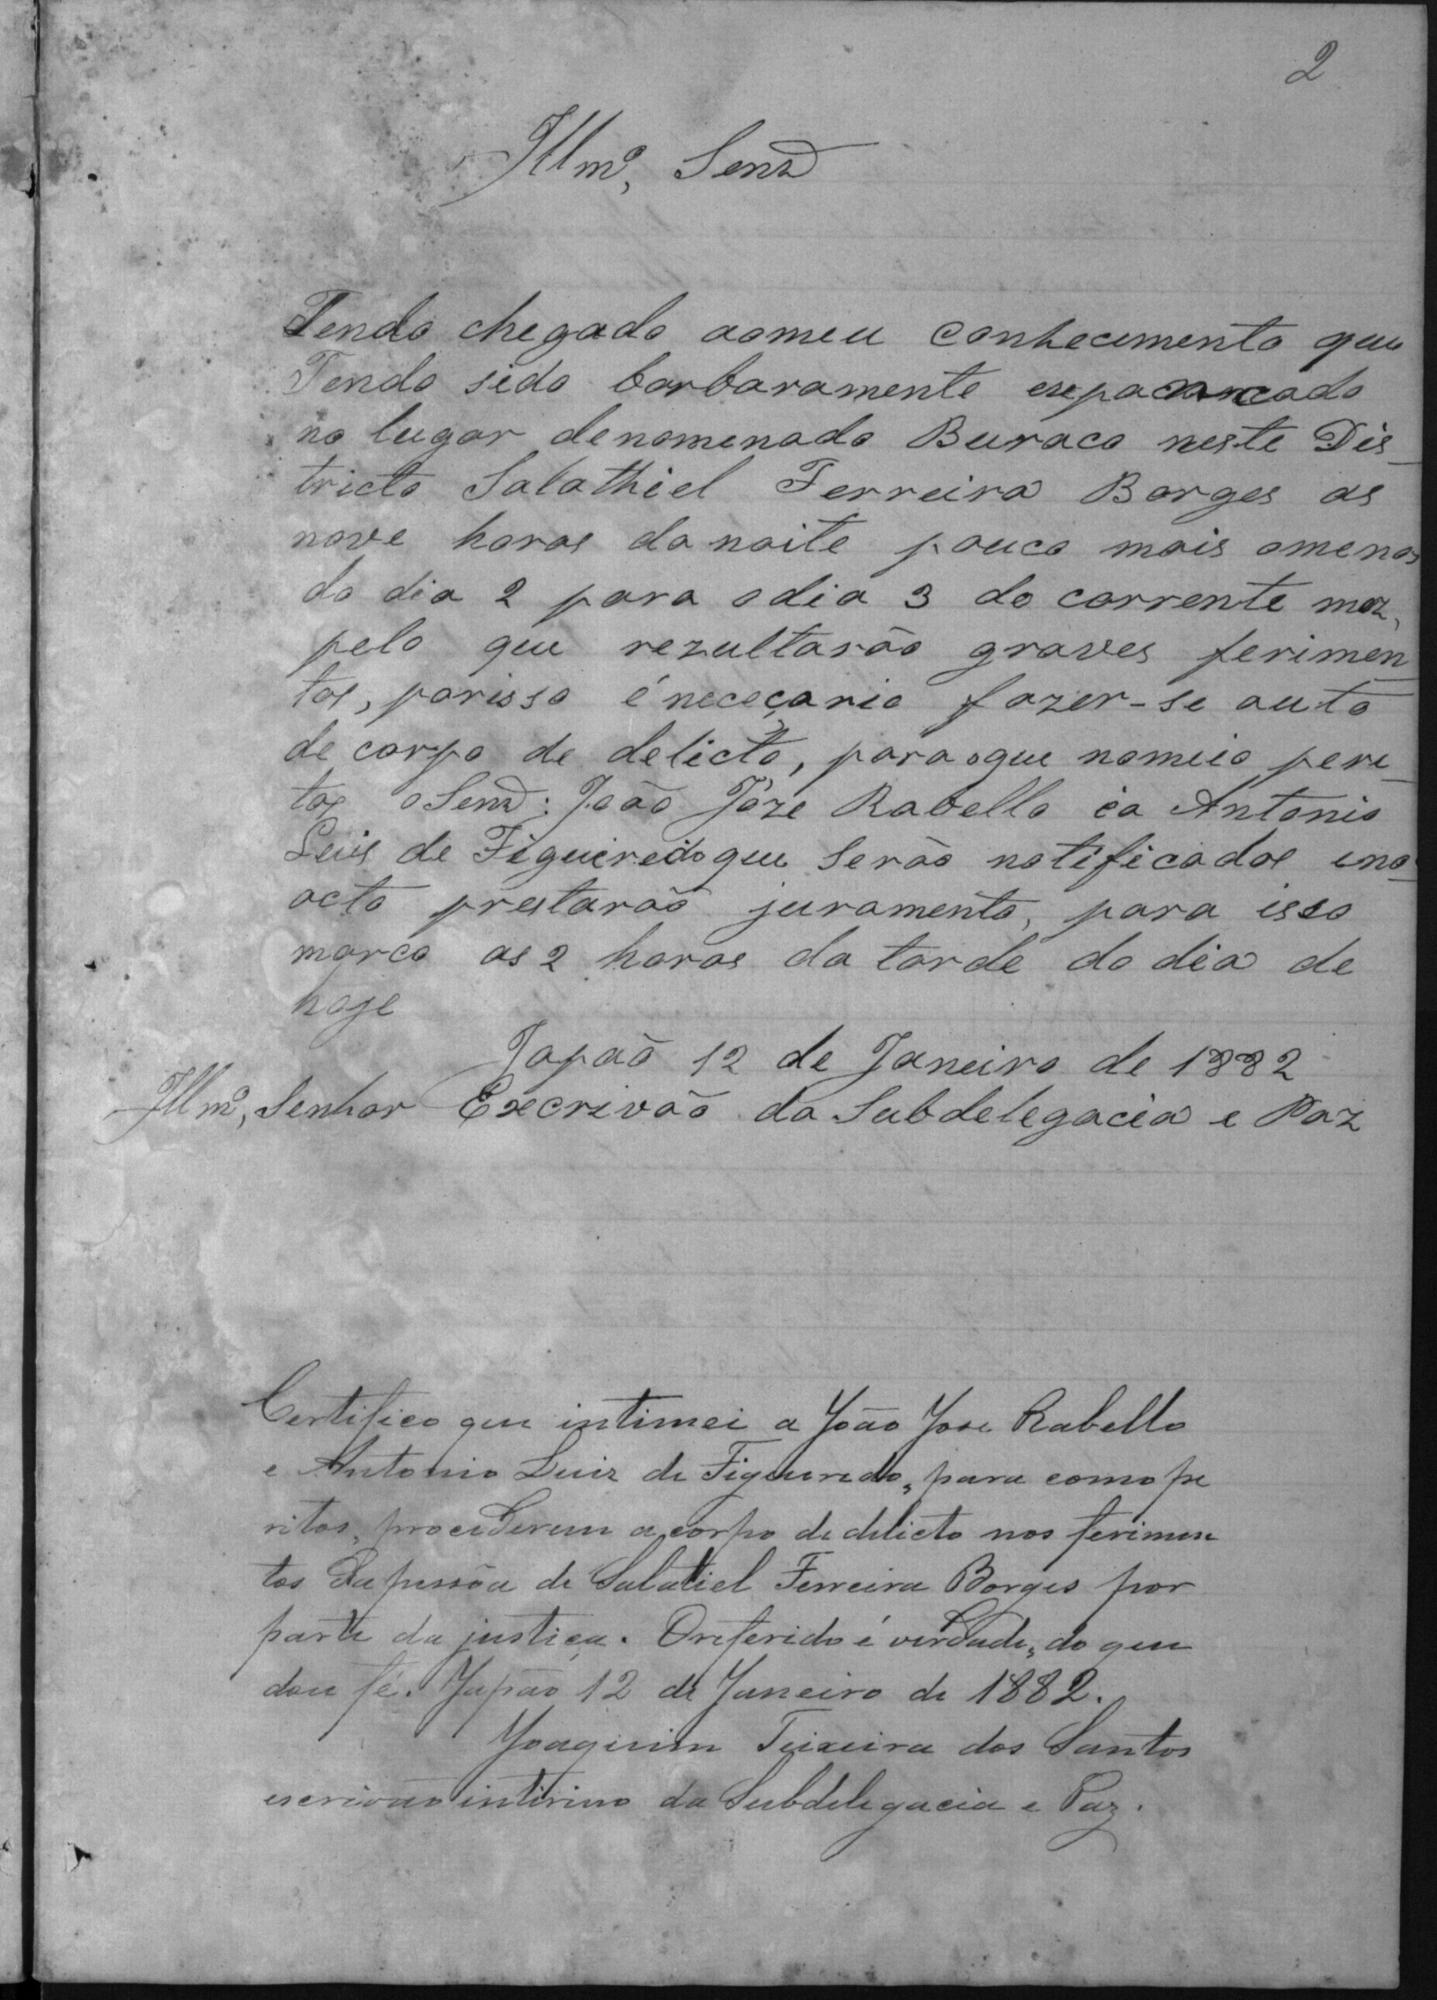 2
Illmo, Senr
Tendo chegado aomeu conhecimento que
Tendo sido barbaramente espancado
no lugar denomenado Buraco neste Dis
tricto Salathiel Ferreira Borges as
nove horas da noite pouco mais omenos
do dia 2 para odia 3 do corrente mez,
pelo que rezultarão graves ferimen
tos, porisso é nececario fazer-se auto
de corpo de delicto, para oque nomeio peri
tos o Senr: João Józe Rabello ea Antonio
Luis de Figueiredo que serão notificados eno
acto prestarão juramento, para isso
marco as 2 horas da tarde do dia de
hoje
Japão 12 de Janeiro de 1882
Illmo, Senhor Escrivão da Subdelegacia e Paz
Certifico que intimei a João Jose Rabello
e Antonio Luiz de Figueiredo, para como pe
ritos, procederem a corpo de delicto nos ferimen
tos da pessôa de Salatiel Ferreira Borges por
parte da justiça. Oreferido é verdade, do que
dou fé. Japão 12 de Janeiro de 1882.
Joaquim Teixeira dos Santos
escrivão intirino da Subdelegacia e Paz.